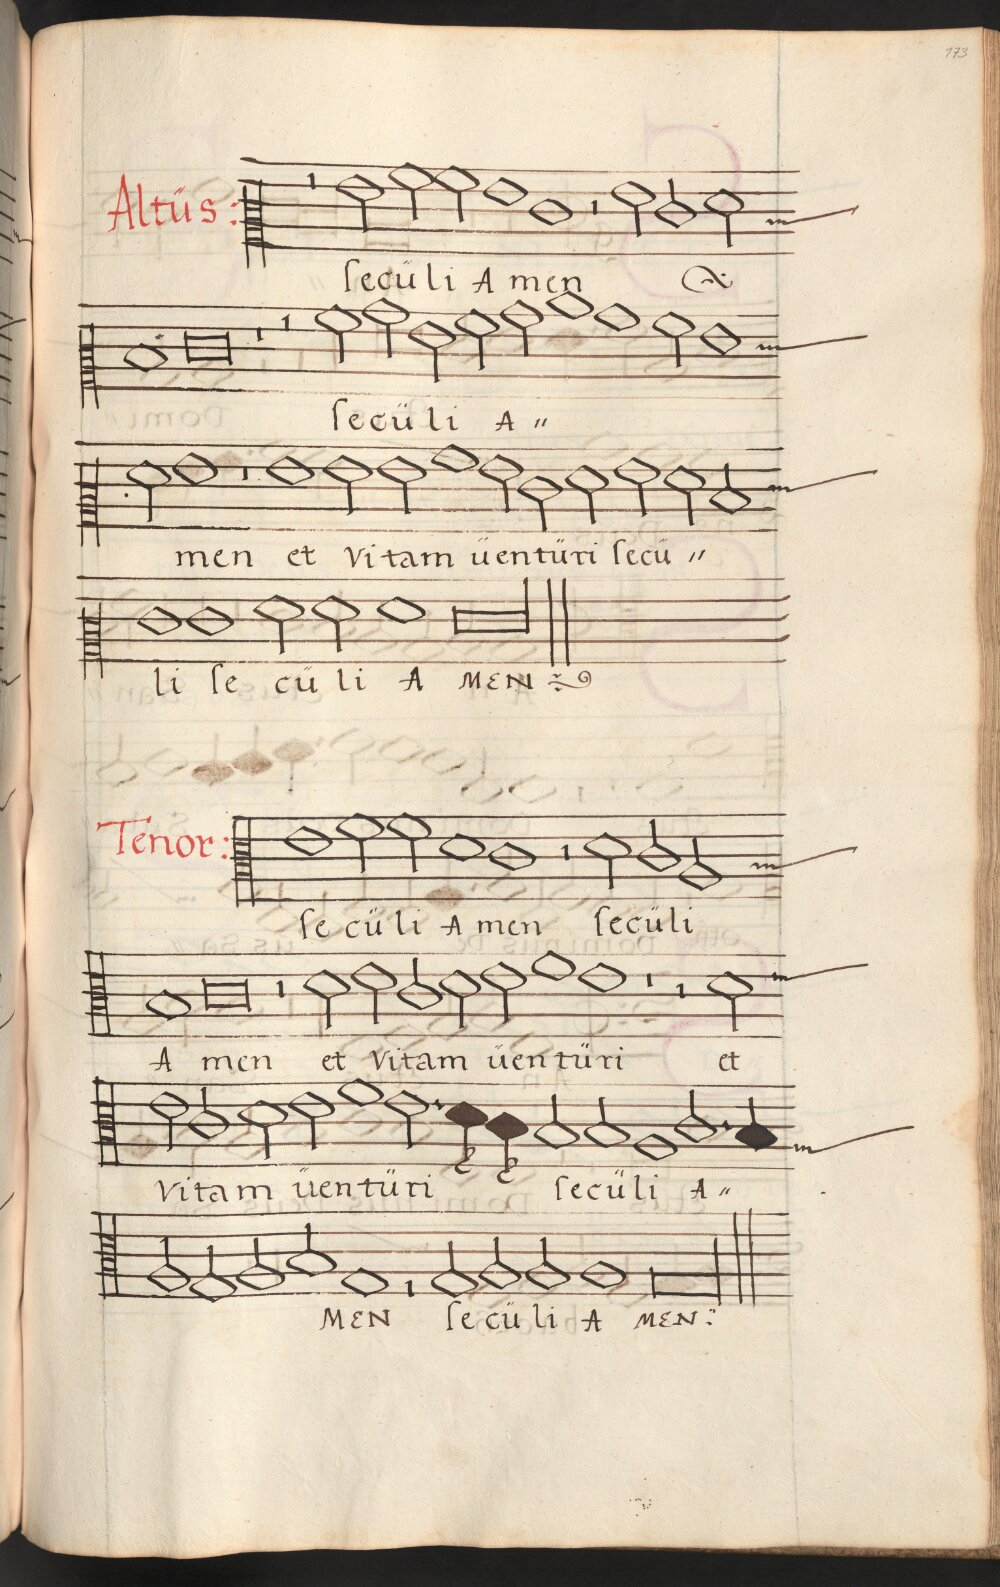 173
Altüs:
secüli Amen
secüli A〃
men et vitam üentüri secü〃
li se cü li A MEN
Tenor:
se cüli Amen secüli
A men et vitam üentüri et
vitam üentüri secüli A〃
MEN secüli A MEN: